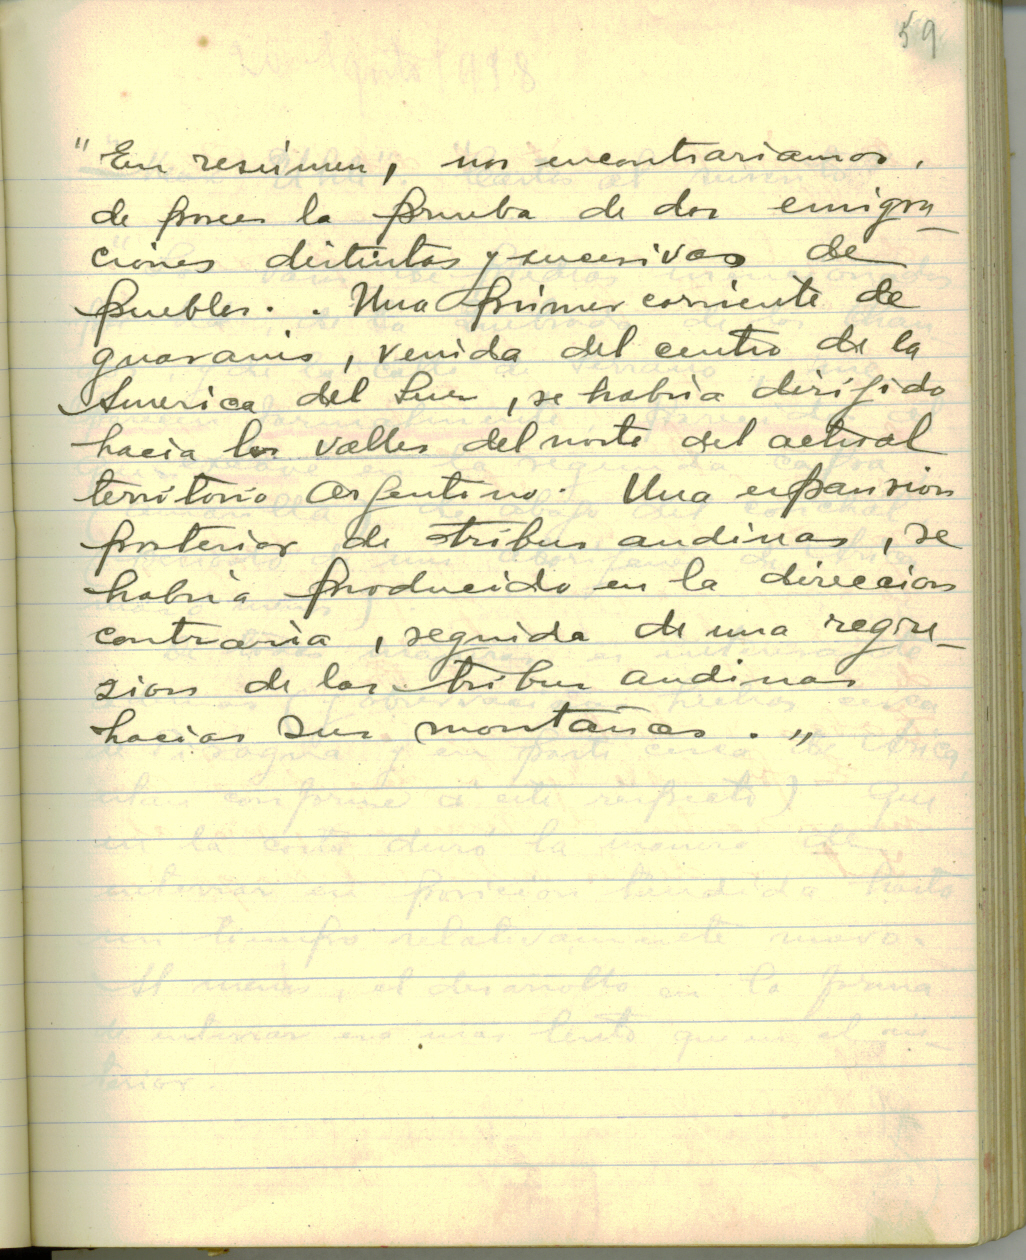 59
"En resúmen, nos encontrariamos,
de poseer la prueba de dos emigra-
ciones distintas y sucesivas de
pueblos. . Una primer corriente de
guaranis, venida del centro de la
America del Sur, se habria dirigido
hacia los valles del norte del actual
territorio argentino. Una expansion
posterior de tribus andinas, se
habria producido en la direccion
contraria, seguida de una regre-
sion de las tribus andinas
hacias sus montañas. "